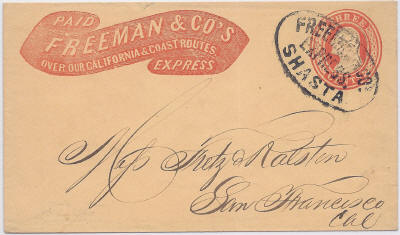 PAID
FREEMAN & CO'S
OVER OUR CALIFORNIA & COAST ROUTES.
EXPRESS
THREE
FREEMAN & CO'S
EXPRESS
SHASTA
Fretz & Ralston
San Francisco
Cal